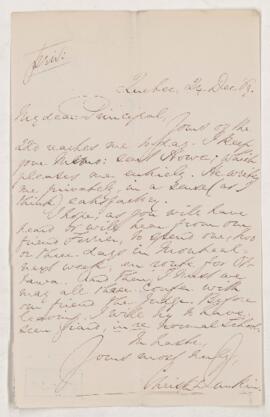 Quebec, 24 Dec
My dear Principal,
Yours of the
reaches me to day. I keep
your Memo: Howe; which
pleases me entirely. He writes
me privately, in a sense (as I
think) satisfactory.
I hope, as you will have
heard or will hear from our
friend Ferrier, to spend one, two
or three days in Montreal
next week, en route for Ot-
tawa. And then, I trust we
may all three confer with
our friend the Judge. Before
leaving, I will try to have
seen Giard, in re Normal School.
In haste,
Yours most truly,
Christ Dunkin